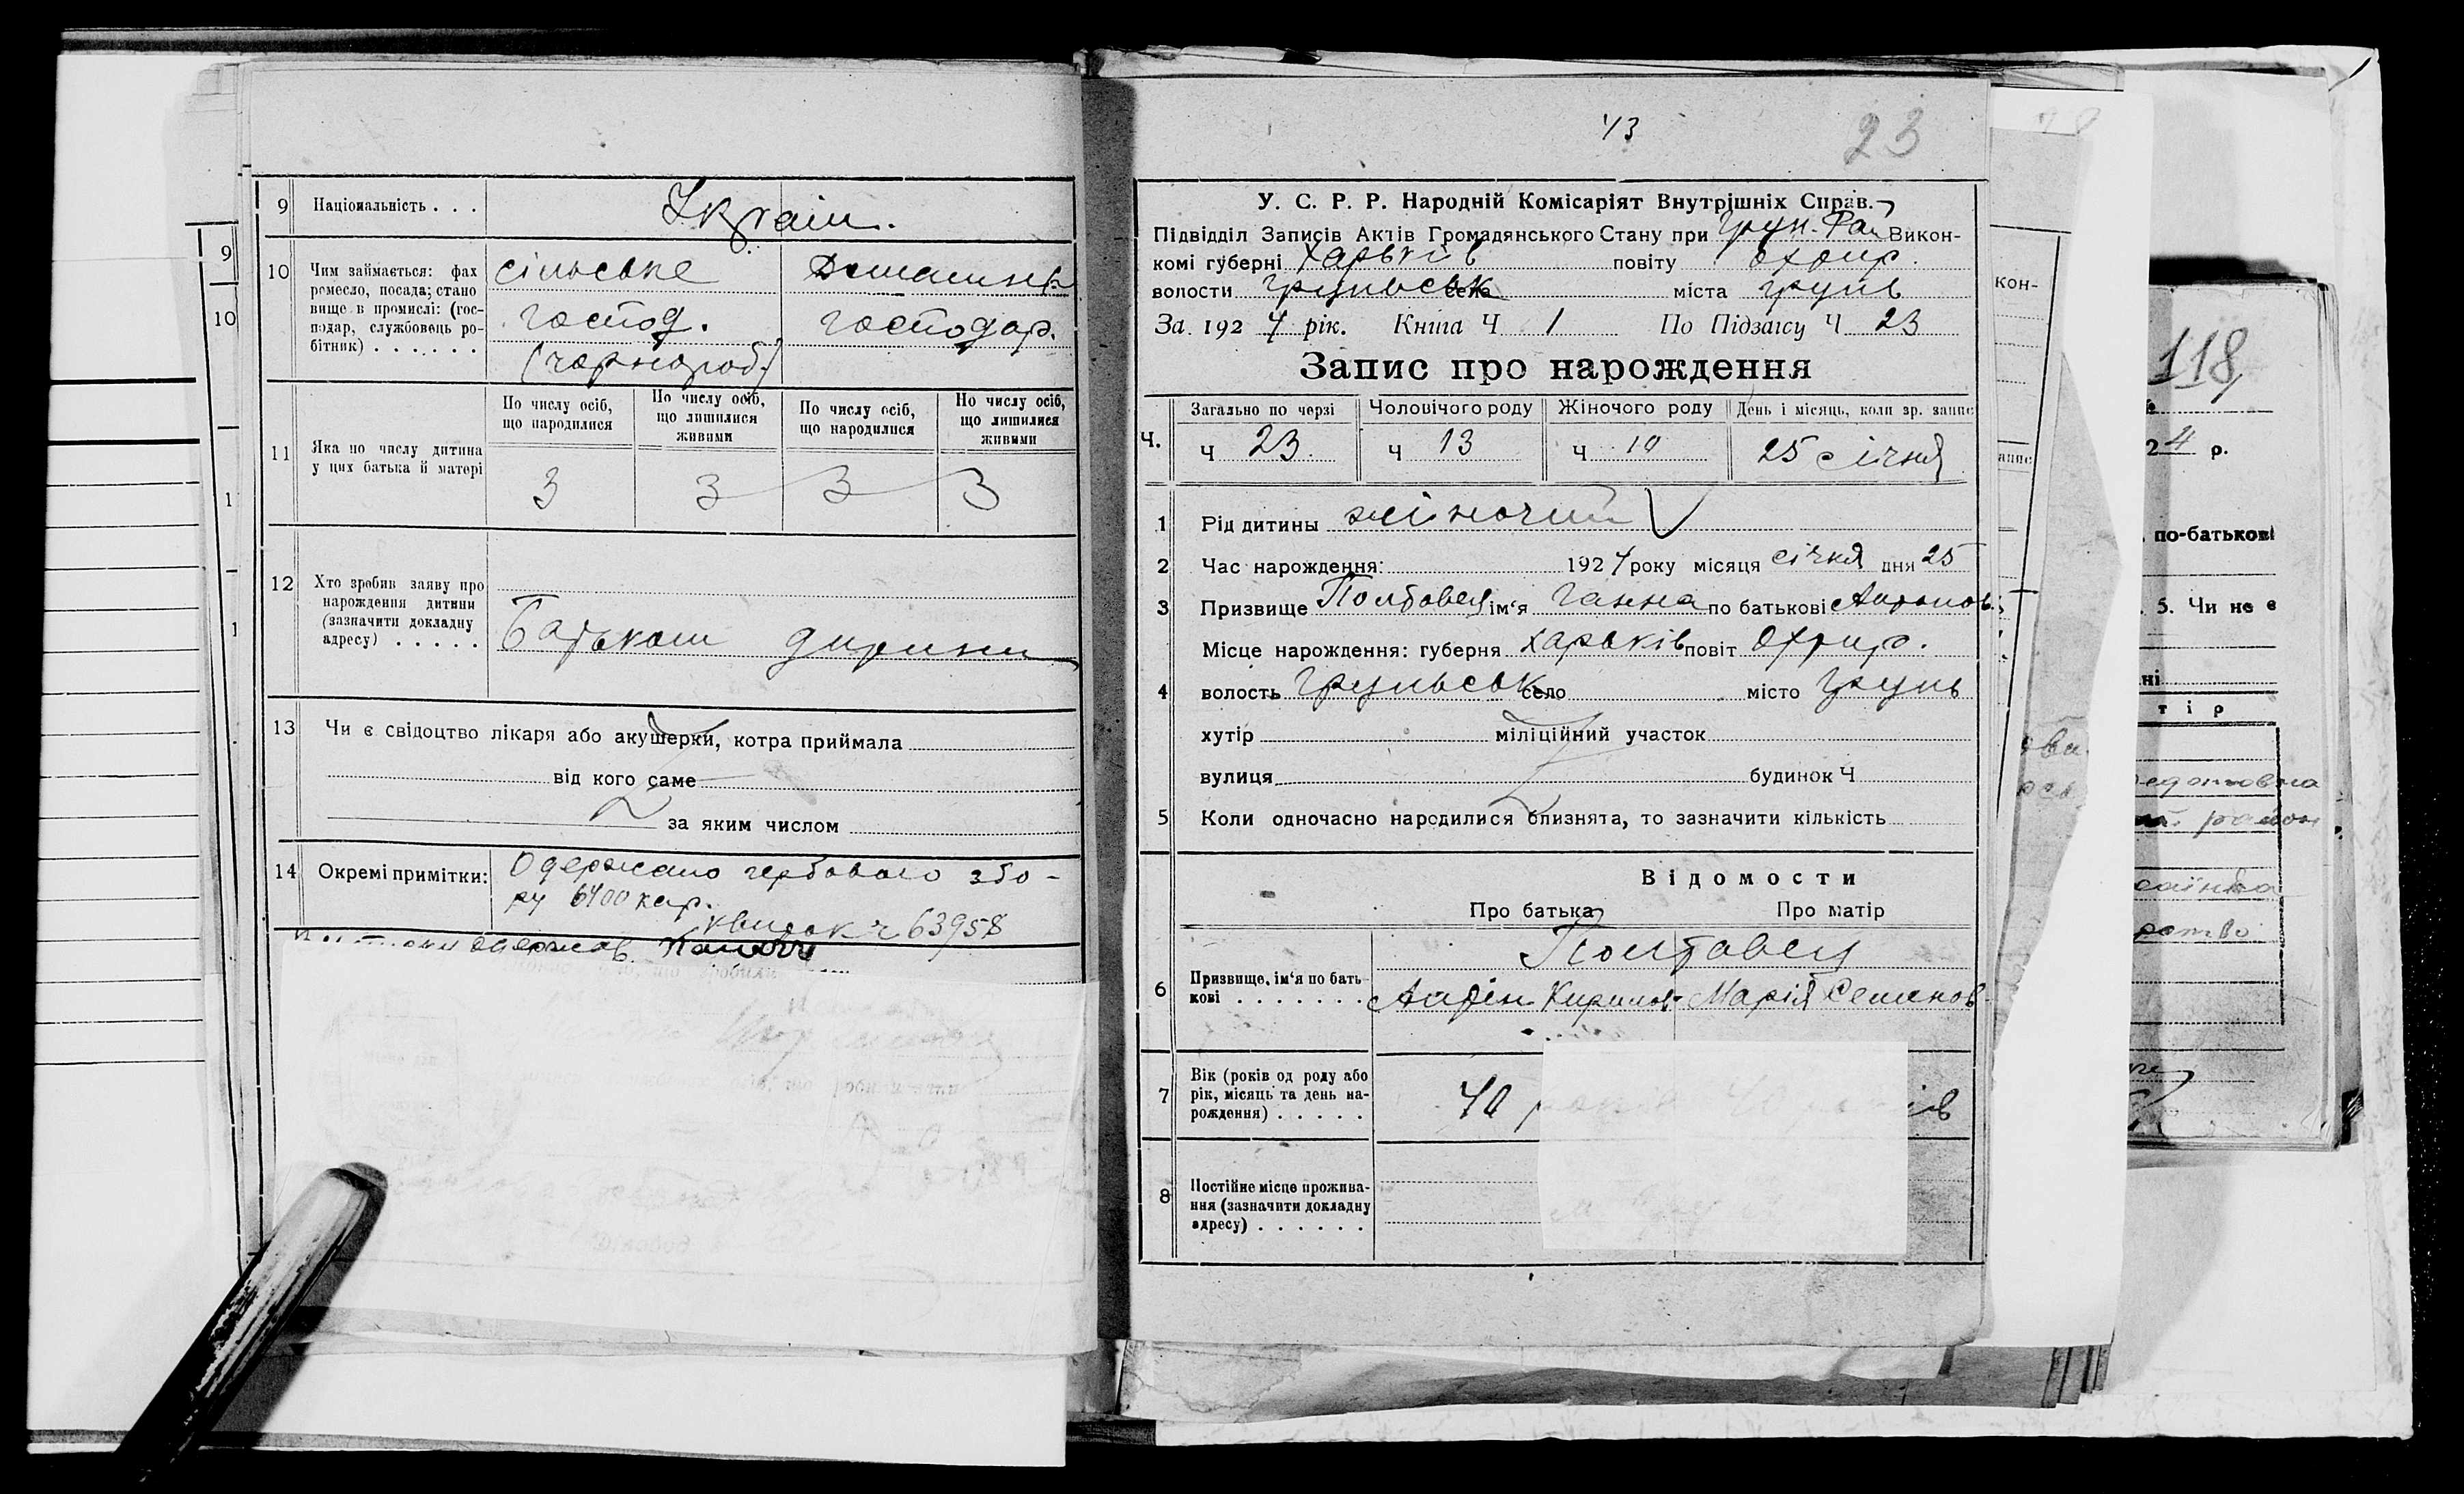 9 Національність . . . Україн.
10 Чим займається: фах
ремесло, посада; стано
вище в промислі: (гос-
подар, службовець ро-
бітник) . . . . . .
сільське
господ.
(чорнороб.)
домашнє
господар.
11 Яка по числу дитина
у цих батька й матері
По числу осіб,
що народилися
По числу осіб,
що лишилися
живими
По числу осіб,
що народилися
По числу осіб,
що лишилися
живими
3 3 3 3
12 Хто зробив заяву про
нарождення дитини
(зазначити докладну
адресу) . . . . .
Батьком дитини
13 Чи є свідоцтво лікаря або акушерки, котра приймала
від кого саме
за яким числом
14 Окремі примітки: Одержано гербового збо-
ру 6400 кар.
квиток ч 63958
9
10
43
23
У. С. Р. Р. Народній Комісаріят Внутрішніх Справ.
Підвідділ Записів Актів Громадянського Стану при Грун. Рай Викон-
комі губерні Харьків повіту Охтир.
волости Груньськ села міста Грунь
За 1924 рік. Книга Ч 1 По Підзагсу Ч 23
Запис про нарождення
Ч.
Загально по черзі Чоловічого роду Жіночого роду День і місяць, коли зр. запис
Ч 23. Ч 13 Ч 10 25 січня
1 Рід дитины жіночий
2 Час нарождення: 1924 року місяця січня дня 25
3 Призвище Полтавець ім'я Ганна по батькові Антонов.
Місце нарождення: губерня Харьків повіт Охтир.
4 волость Груньськ село місто Грунь
хутір міліційний участок
вулиця будинок Ч
5 Коли одночасно народилися близнята, то зазначити кількість
Відомости
Про батька Про матір
6 Призвище, ім'я по бать-
кові . . . . . . .
Полтавець
Антін Кирилов. Марія Семенов.
7 Вік (років од роду або
рік, місяць та день на-
рождення) . . . . .
40
8 Постійне місце прожива-
ння (зазначити докладну
адресу) . . . . . .
кон-
118
24 р.
по-батькові
5. Чи не є
тір
район